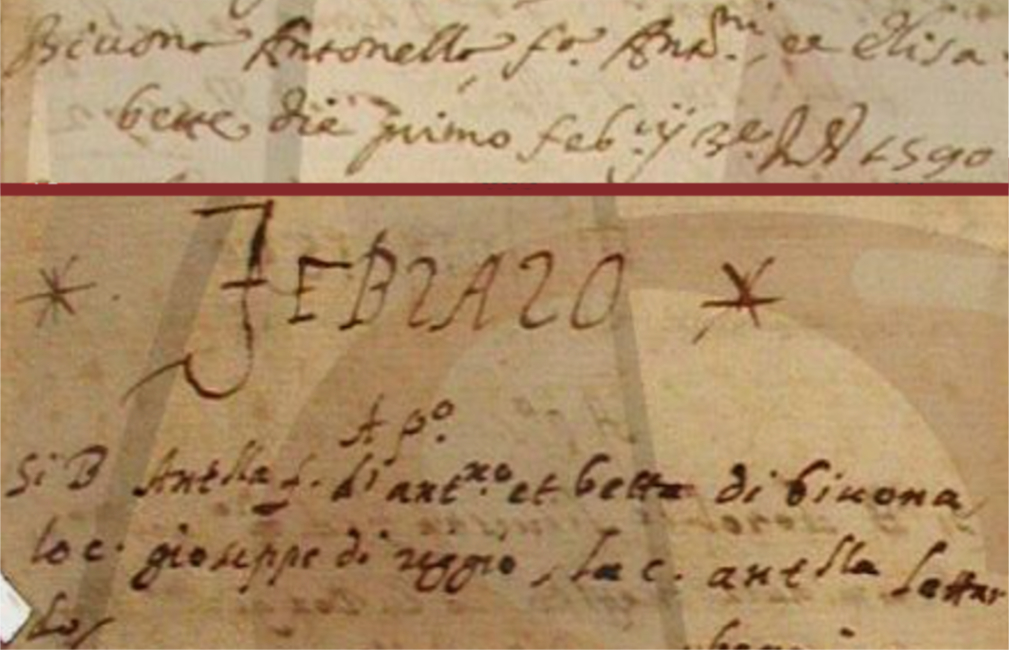 Biuona Antonella fa. Antni. et Elisa
bette die primo feb.ij 3e. Ind 1590
* FEBRARO *
A po.
Si B Antlla f. d'antno. et betta di biuona,
lo c. gioseppe di reggio, la c. antella